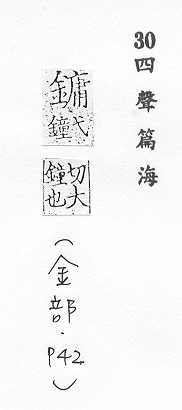 30四聲篇海
鏞弋鐘
切大
鐘也
(金部.P42)